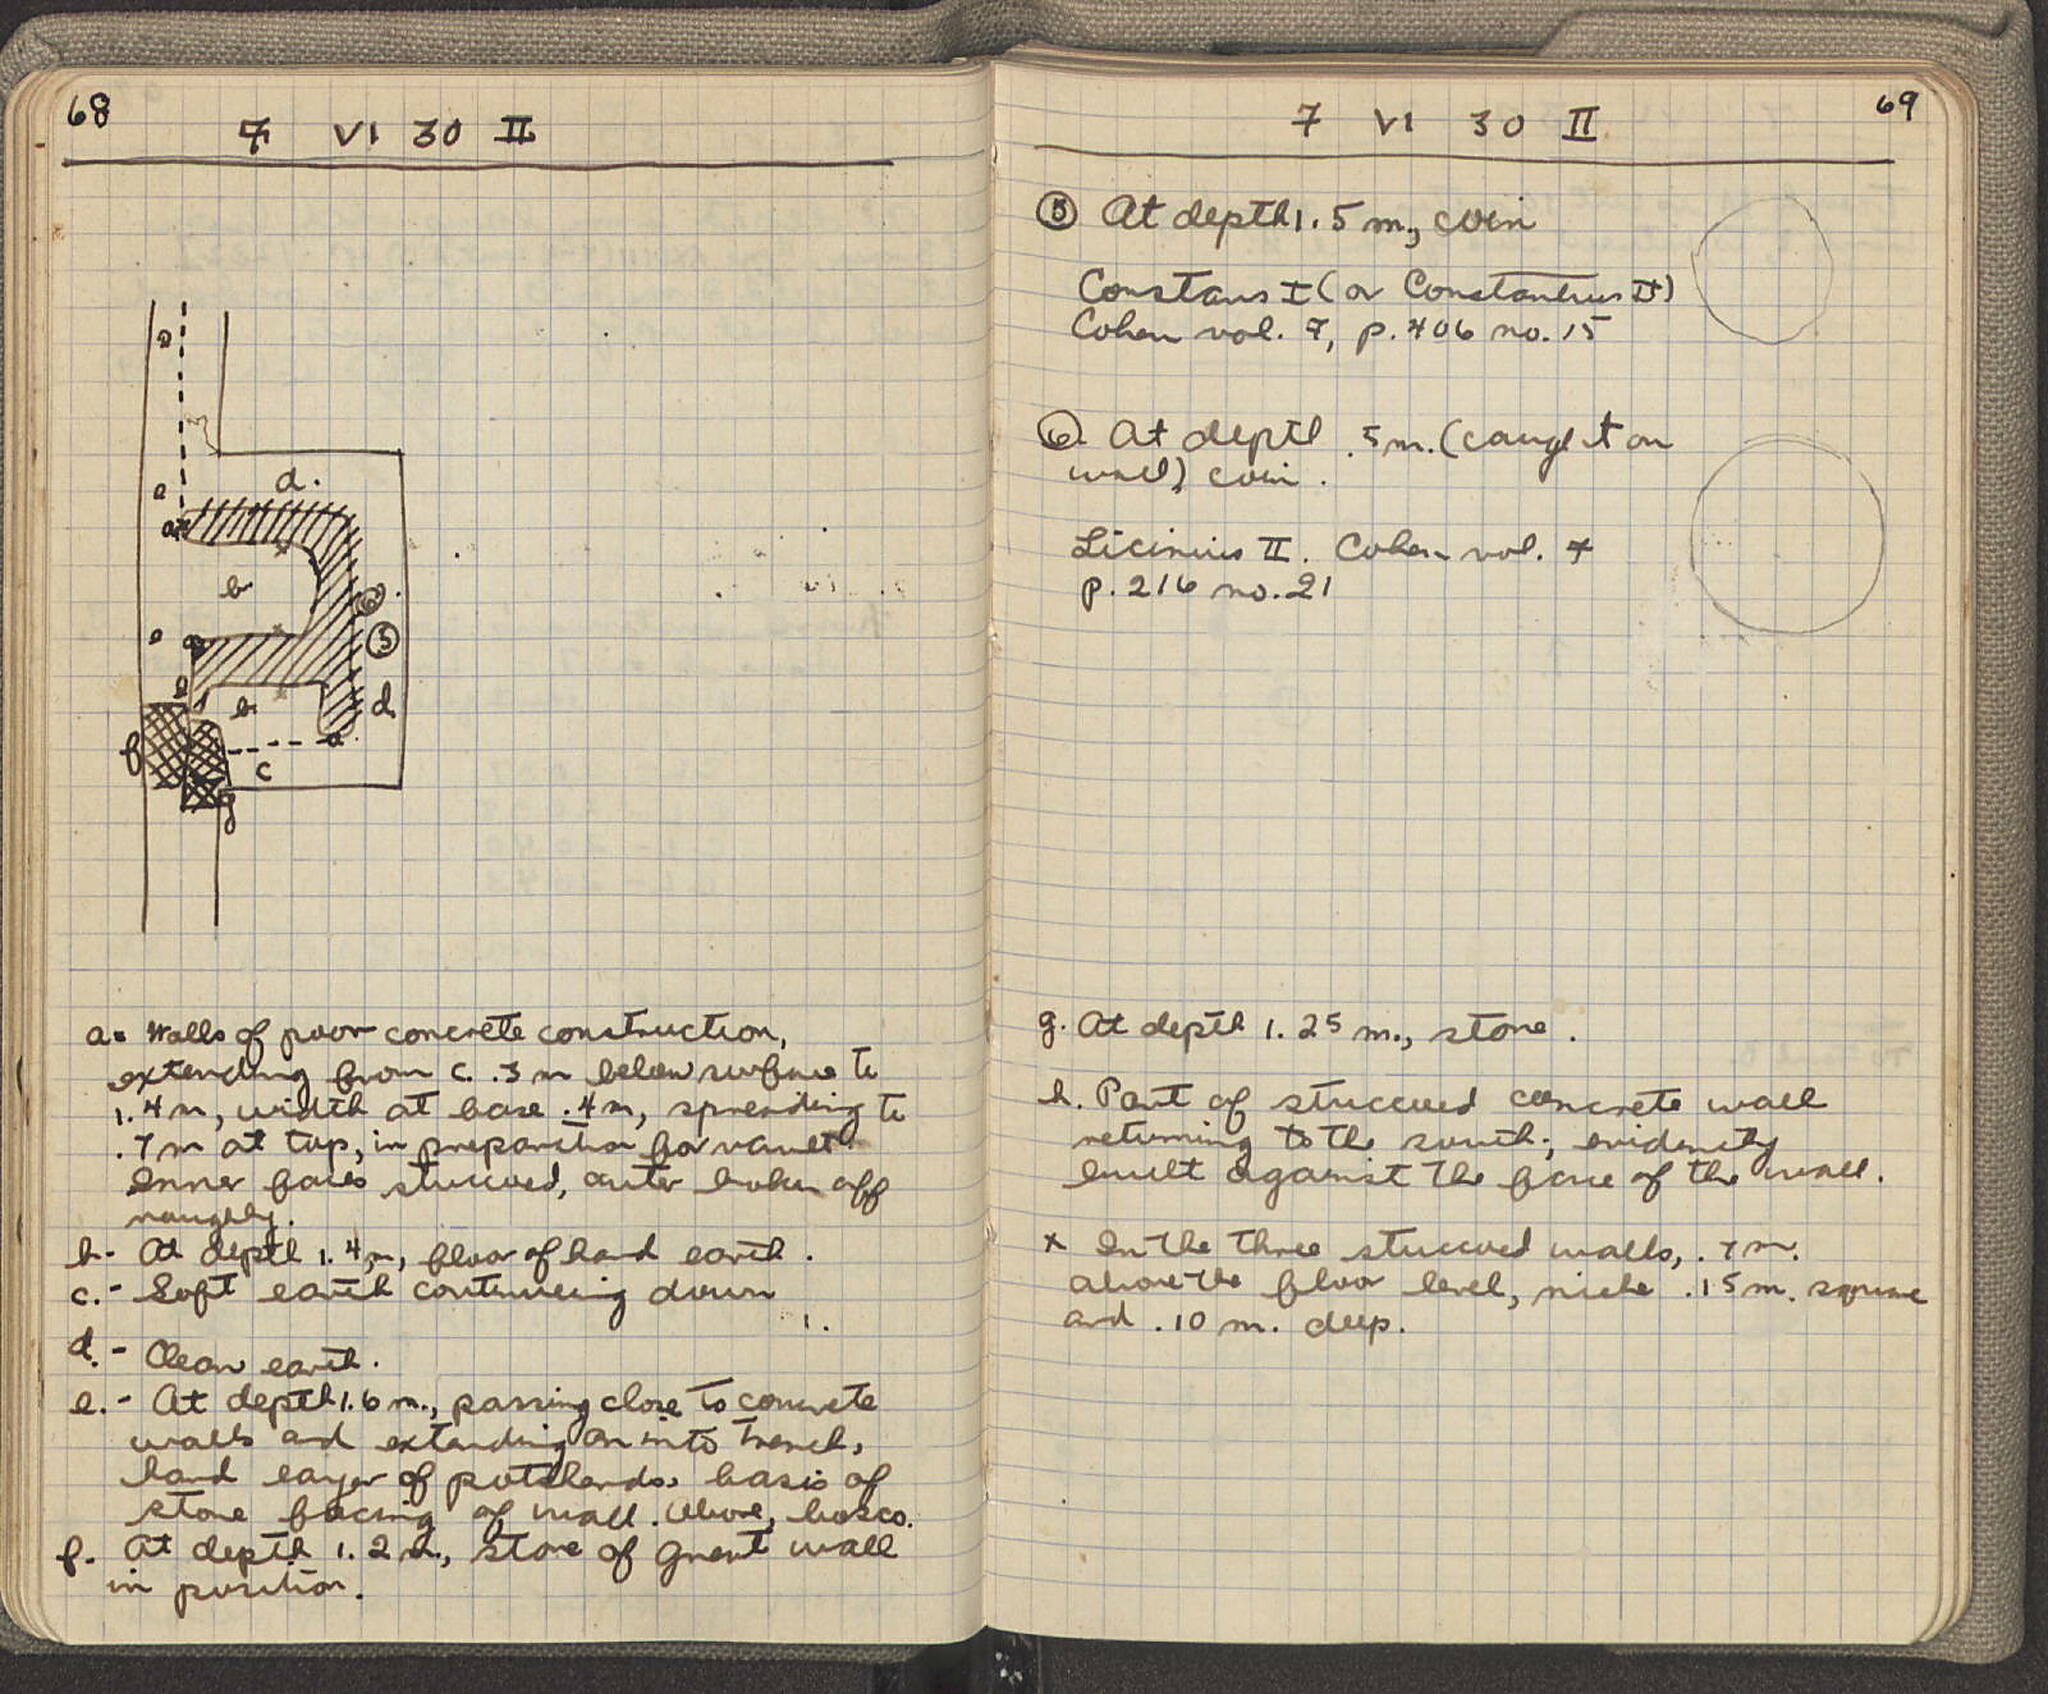 68
7 VI 30 II
e
d.
e
a
b
6
e a
5
e
b
d.
f
a
c
g
a. Walls of poor concrete construction,
extending from c. .3 m below surface to
1.4 m, width at base .4 m, spreading to
.7 m at top, in preparation for vault.
Inner faces stuccoed, outer broken off
roughly.
b.- At depth 1.4 m, floor of hard earth.
c.- Soft earth continuing down
d.- Clean earth.
e.- At depth 1.6 m., passing close to concrete
walls and extending on into trench,
hard layer of potsherds, basis of
stone facing of wall. Above, bosco.
f. At depth 1.2 m., stone of great wall
in position.
69
7 VI 30 II
5 At depth 1.5 m, coin
Constans I (or Constantius II)
Cohen vol. 7, p. 406 no. 15
6. At depth .5 m. (caught on
wall) coin.
Licinius II. Cohen vol. 7
p. 216 no. 21
g. At depth 1.25 m., stone.
h. Part of stuccoed concrete wall
returning to the south; evidently
built against the face of the wall.
x In the three stuccoed walls, .7 m.
above the floor level, niche .15 m. square
and .10 m. deep.